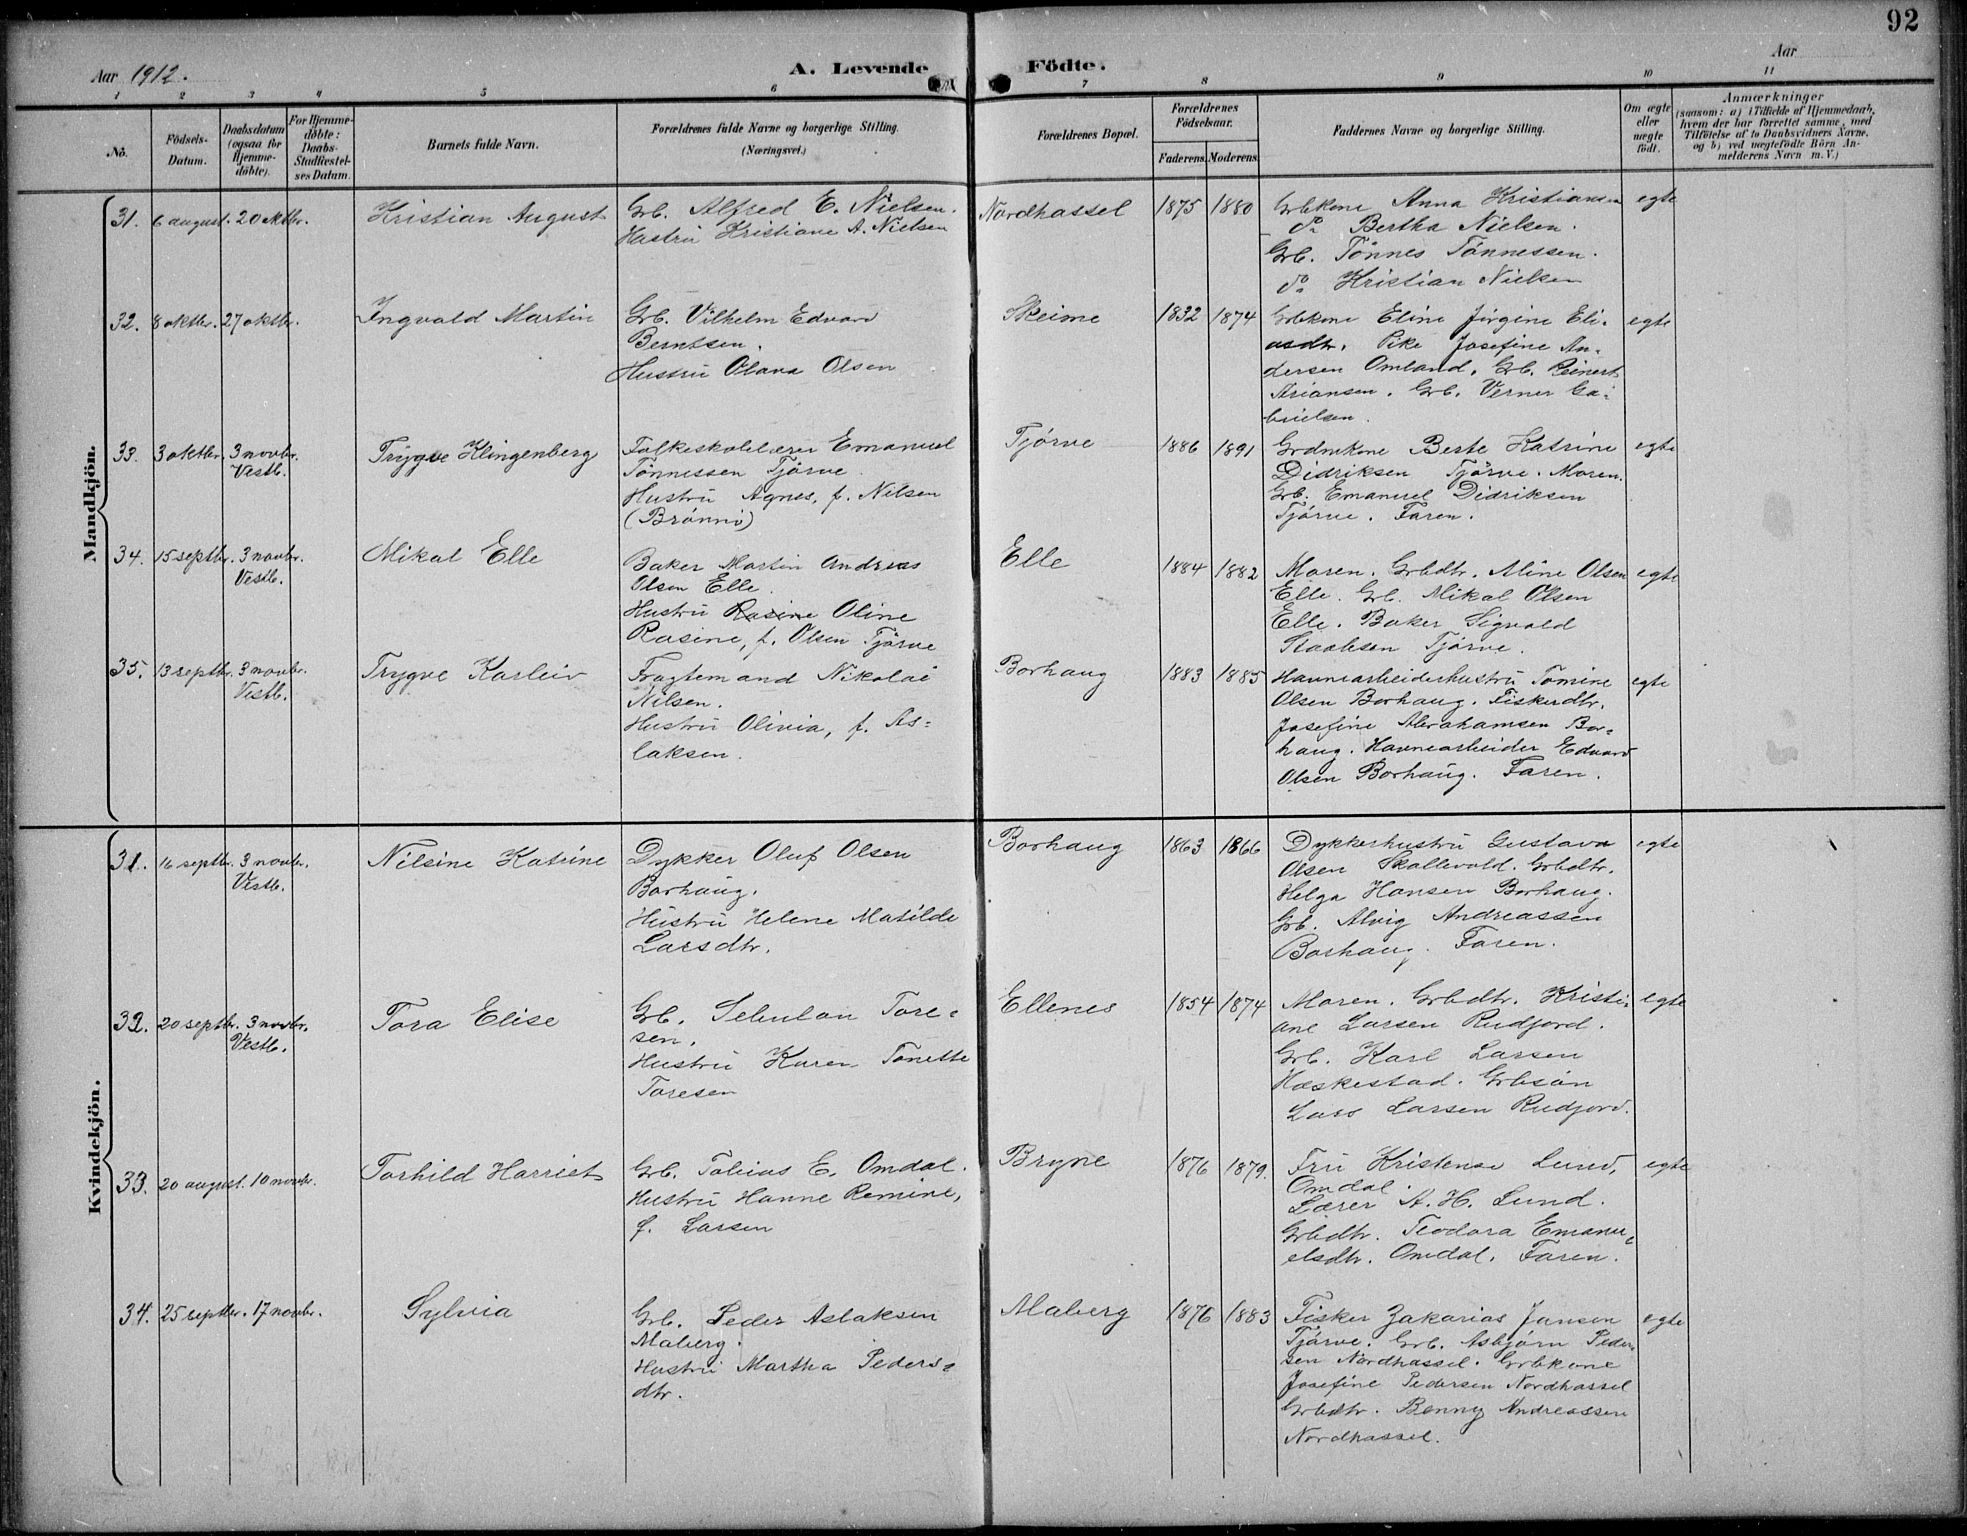 92
Aar 1912.
A. Levende Födte.
Aar
1 2 3 4 5 6 7 8 9 10 11
No.
Födsels-
Datum.
Daabsdatum
(ogsaa for
Hjemme-
döbte).
For Hjemme-
döbte:
Daabs-
Stadfæstel-
ses Datum.
Barnets fulde Navn.
Forældrenes fulde Navne og borgerlige Stilling.
(Næringsvei.)
Forældrenes Bopæl.
Forældrenes
Födselsaar.
Faderens. Moderens.
Faddernes Navne og borgerlige Stilling.
Om ægte
eller
uægte
födt.
Anmærkninger
(saasom: a) i Tilfælde af Hjemmedaab,
hvem der har forrettet samme, med
Tilföielse af to Daabsvidners Navne,
og b) ved uægtefödte Börn An-
melderens Navn m. V.)
Mandkjön.
31. 6 august. 20 oktbr.
Kristian August
Grb. Alfred E. Nielsen.
Hustru Kristiane A. Nielsen
Nordhassel
1875 1880
Grbkone Anna Kristiansen
do Bertha Nielsen.
Grb. Tønnes Tønnessen.
do Kristian Nielsen
egte
32. 8 oktbr. 27 oktbr.
Ingvald Martin
Grb. Vilhelm Edvard
Berntsen.
Hustru Olava Olsen
Skeime
1832 1874
Grbkone Eline Jirgine Eli-
asdtr. Pike Josefine An-
dersen Omland. Grb. Reinert
Ariansen. Grb. Verner Ga-
brielsen.
egte
33. 3 oktbr. 3 novbr.
Vestb.
Trygve Klingenberg
Folkeskolelærer Emanuel
Tønnessen Tjørve.
Hustru Agnes, f. Nilsen
(Brønnø)
Tjørve
1886 1891
Grdmkone Berte Katrine
Didriksen Tjørve. Moren.
Grb. Emanuel Didriksen
Tjørve. Faren.
egte
34. 15 septbr. 3 novbr.
Vestb.
Mikal Elle
Baker Martin Andreas
Olsen Elle.
Hustru Rasine Oline
Rasine, f. Olsen Tjørve
Elle
1884 1882
Moren. Grbdtr. Aline Olsen
Elle. Grb. Mikal Olsen
Elle. Baker Sigvald
Staalesen Tjørve.
egte
35. 13 septbr. 3 novbr.
Vestb.
Trygve Karleiv
Fragtemand Nikolai
Nilsen.
Hustru Olivia, f. As-
laksen.
Borhaug
1883 1885
Havnearbeiderhustru Tomine
Olsen Borhaug. Fiskerdtr.
Josefine Abrahamsen Bor-
haug. Havnearbeider Edvard
Olsen Borhaug. Faren.
egte
Kvindekjön.
31. 16 septbr. 3 novbr.
Vestb.
Nilsine Katrine
Dykker Oluf Olsen
Borhaug.
Hustru Helene Matilde
Larsdtr.
Borhaug
1863 1866
Dykkerhustru Gustava
Olsen Skollevold. Grbdtr.
Helga Hansen Borhaug.
Grb. Alvig Andreassen
Borhaug. Faren.
egte
32. 20 septbr. 3 novbr.
Vestb.
Tora Elise
Grb. Sebulon Tore-
sen.
Hustru Karen Tonette
Toresen
Ellenes
1854 1874
Moren. Grbdtr. Kristi-
ane Larsen Rudjord.
Grb. Karl Larsen
Hæskestad. Grbsøn
Lars Larsen Rudjord.
egte
33. 20 august. 10 novbr.
Torhild Harriet
Grb. Tobias E. Omdal.
Hustru Hanne Remine,
f. Larsen
Bryne
1876 1879.
Fru Kristense Lund,
Omdal.
Lærer A. H. Lund.
Grbdtr. Teodora Emanu-
elsdtr. Omdal. Faren.
egte
34. 25 septbr. 17 novbr.
Sylvia
Grb. Peder Aslaksen
Maberg.
Hustru Martha Peders-
dtr.
Maberg
1876 1883
Fisker Zakarias Jansen
Tjørve. Grb. Asbjørn Peder-
sen Nordhassel. Grbkone
Josefine Pedersen Nordhassel
Grbdtr. Benny Andreassen
Nordhassel.
egte